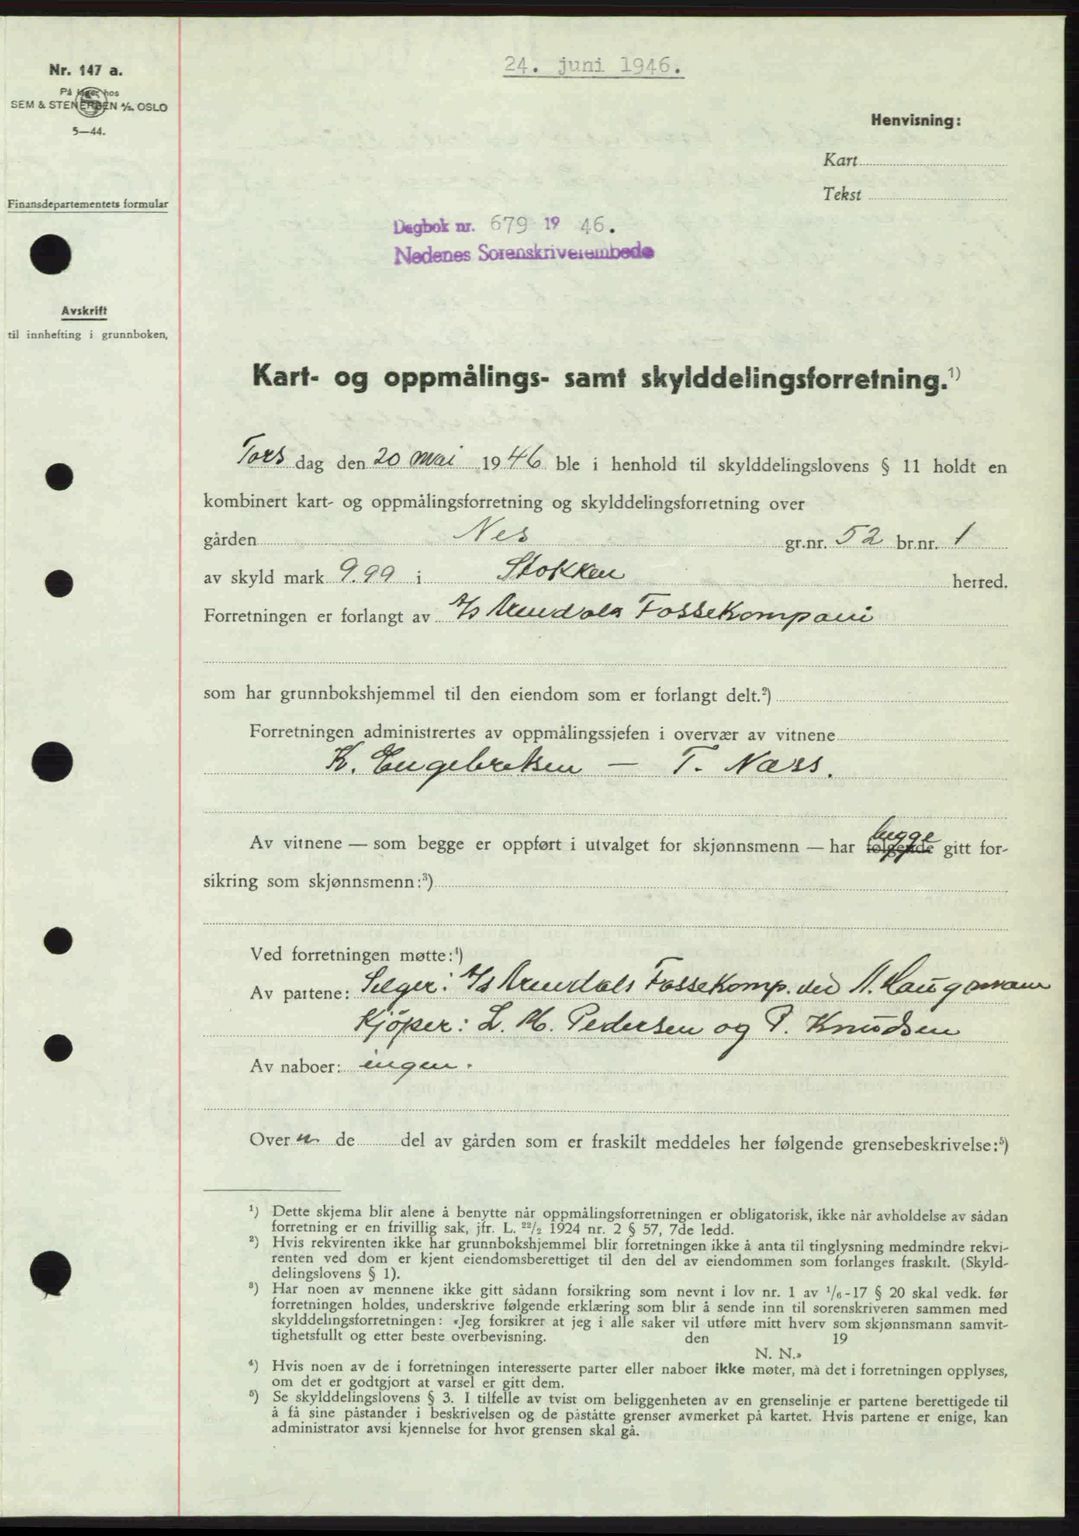 24. juni 1946.
Nr. 147 a.
På lager hos
SEM & STENERSEN A/S. OSLO
5—44.
Henvisning:
Kart
Tekst
Finansdepartementets formular
Dagbok nr. 679 19 46.
Nedenes Sorenskriverembede
Avskrift
til innhefting i grunnboken,
Kart- og oppmålings- samt skylddelingsforretning.¹)
Tors dag den 20 mai 1946 ble i henhold til skylddelingslovens § 11 holdt en
kombinert kart- og oppmålingsforretning og skylddelingsforretning over
gården Nes gr.nr. 52 br.nr. 1
av skyld mark 9.99 i Stokken herred.
Forretningen er forlangt av A/S Arendals Fossekompani
som har grunnbokshjemmel til den eiendom som er forlangt delt.²)
Forretningen administrertes av oppmålingssjefen i overvær av vitnene
K. Engebretsen — T. Næss.
begge
Av vitnene — som begge er oppført i utvalget for skjønnsmenn — har følgende gitt for-
sikring som skjønnsmenn:³)
Ved forretningen møtte:⁴)
Av partene: Selger: A/S Arendals Fossekomp. ved
Kjøper: L. M. Pedersen og P. Knudsen
Av naboer: ingen.
Over de del av gården som er fraskilt meddeles her følgende grensebeskrivelse:⁵)
¹) Dette skjema blir alene å benytte når oppmålingsforretningen er obligatorisk, ikke når avholdelse av sådan
forretning er en frivillig sak, jfr. L. ²²/₂ 1924 nr. 2 § 57, 7de ledd.
²) Hvis rekvirenten ikke har grunnbokshjemmel blir forretningen ikke å anta til tinglysning medmindre rekvi-
renten ved dom er kjent eiendomsberettiget til den del av eiendommen som forlanges fraskilt. (Skyld-
delingslovens § 1).
³) Har noen av mennene ikke gitt sådann forsikring som nevnt i lov nr. 1 av ¹/₆-17 § 20 skal vedk. før
forretningen holdes, underskrive følgende erklæring som blir å sende inn til sorenskriveren sammen med
skylddelingsforretningen: «Jeg forsikrer at jeg i alle saker vil utføre mitt hverv som skjønnsmann samvit-
tighetsfullt og etter beste overbevisning. den 19
N. N.»
⁴) Hvis noen av de i forretningen interesserte parter eller naboer ikke møter, må det i forretningen opplyses,
om det er godtgjort at varsel er gitt dem.
⁵) Se skylddelingslovens § 3. I tilfelle av tvist om beliggenheten av en grenselinje er partene berettigede til
å få sine påstander i beskrivelsen og de påståtte grenser avmerket på kartet. Hvis partene er enige, kan
administrator avsi kjennelse for hvor grensen skal gå.